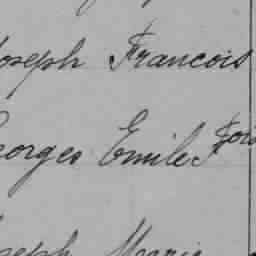 Joseph Francois
Georges Emile
Joseph Marie